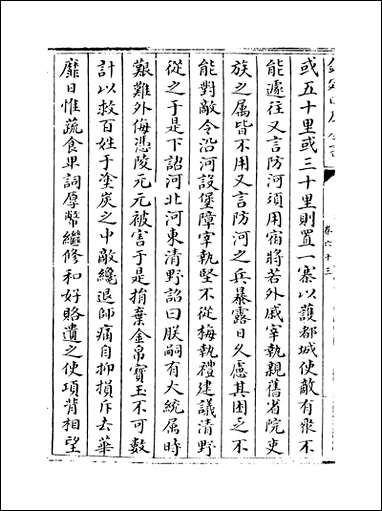 欽定四庫全書
卷六十三
或五十里或三十里則置一寨以護都城使敵有衆不
能遽往又言防河須用宿將若外戚宰執親舊省院吏
族之屬皆不用又言防河之兵暴露日久慮其困乏不
能對敵令沿河設堡障宰執堅不從梅執禮建議清野
從之于是下詔河北河東清野詔曰朕嗣有大統屬時
艱難外侮憑陵元元被害于是捐棄金帛寶玉不可數
計以救百姓于塗炭之中敵纔退師痛自抑損斥去華
靡日惟蔬食卑詞厚幣繼修和好賂遺之使項背相望